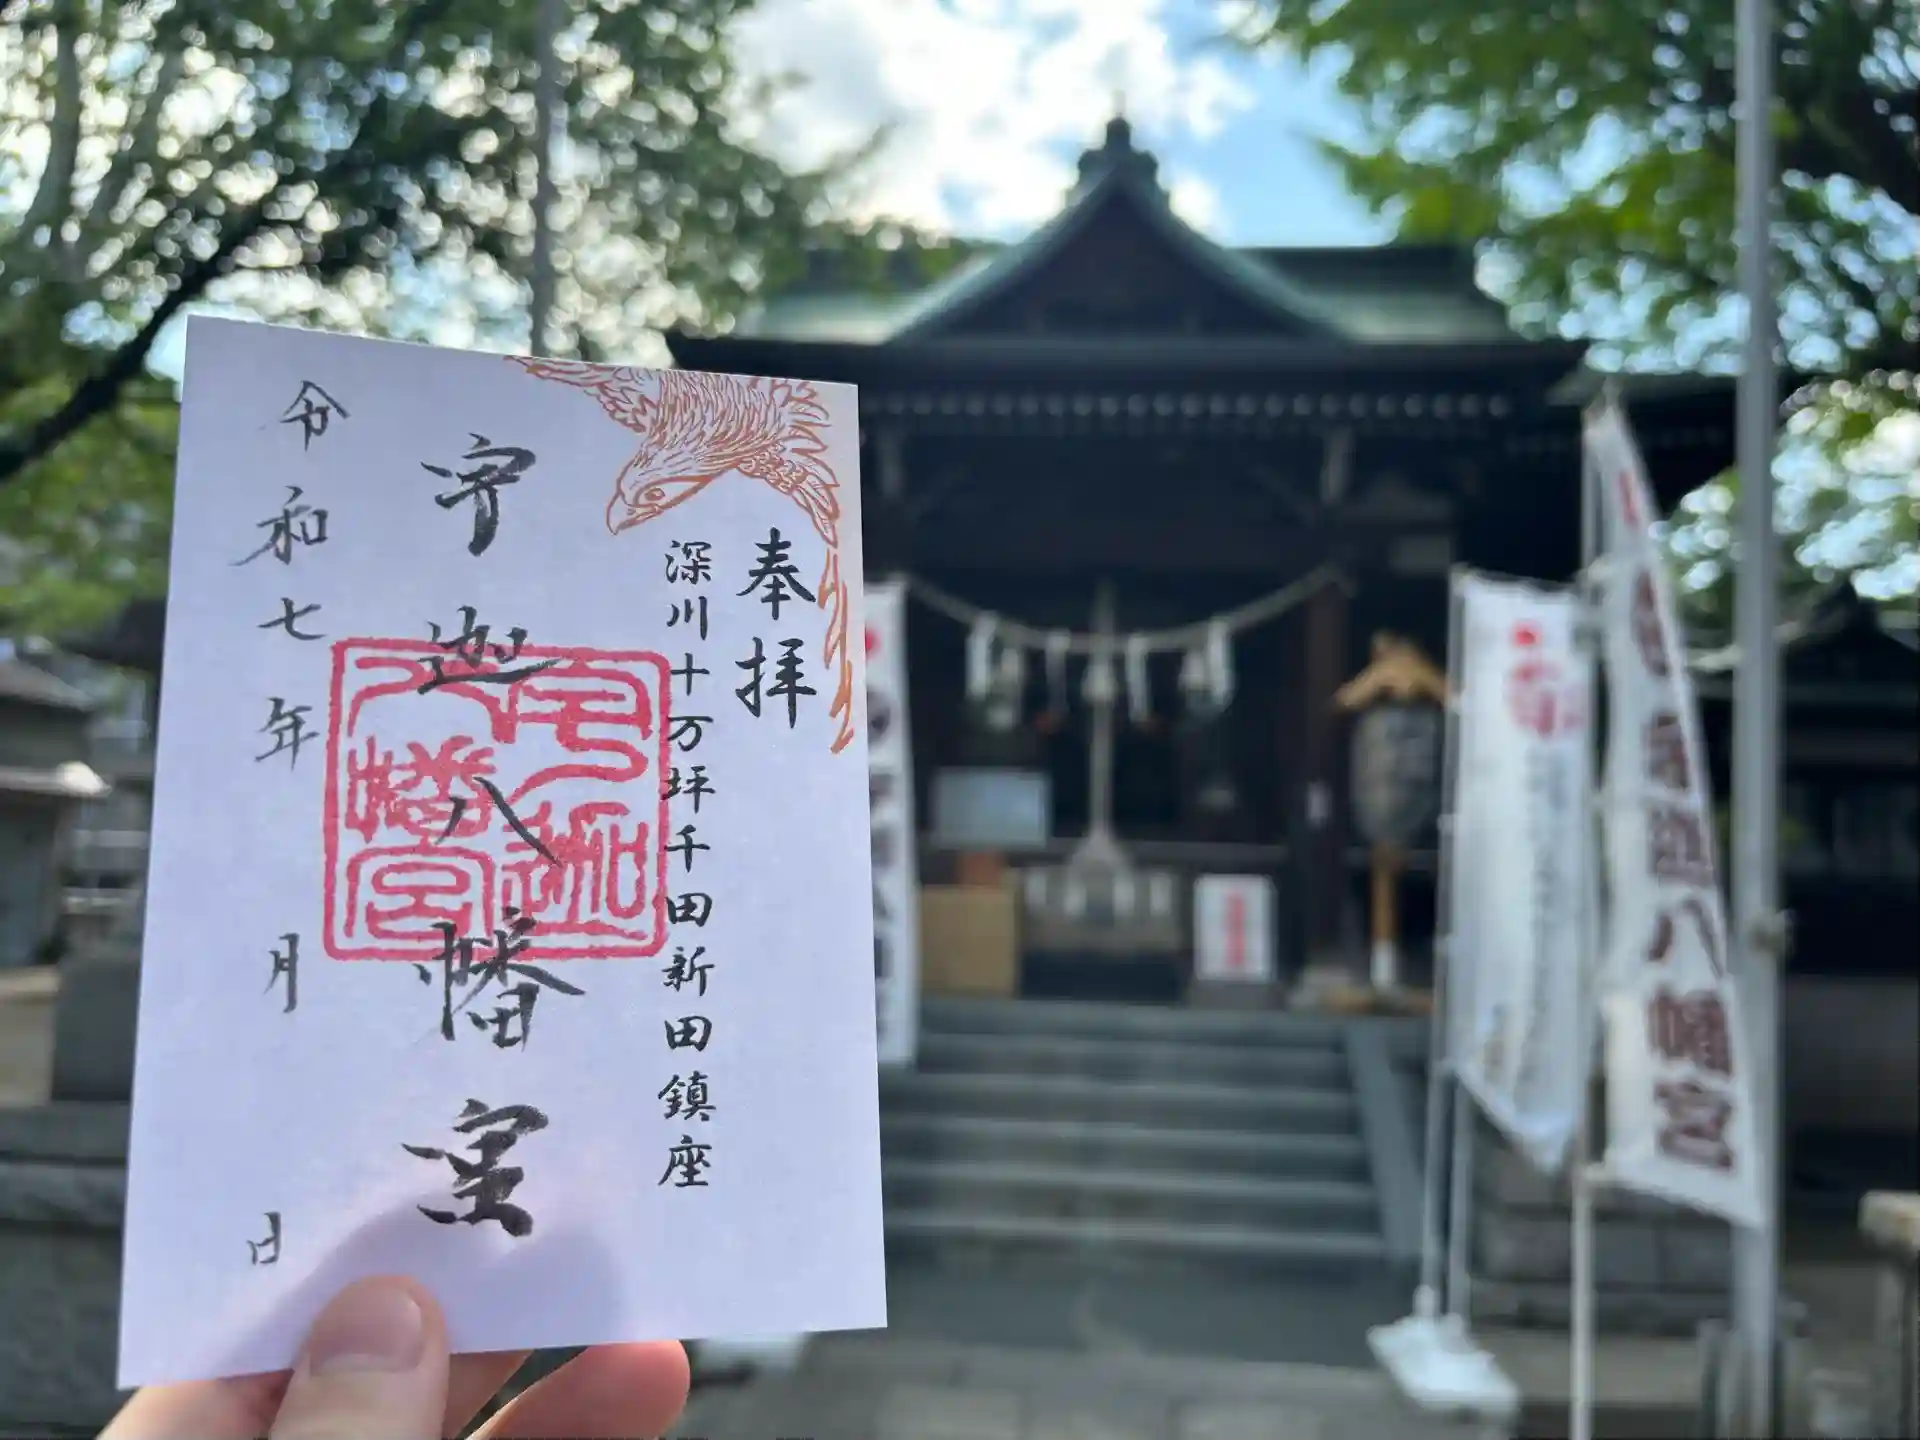 奉拝
深川十万坪千田新田鎮座
宇迦八幡宮
宇迦
八幡宮
令和七年 月 日
八幡宮